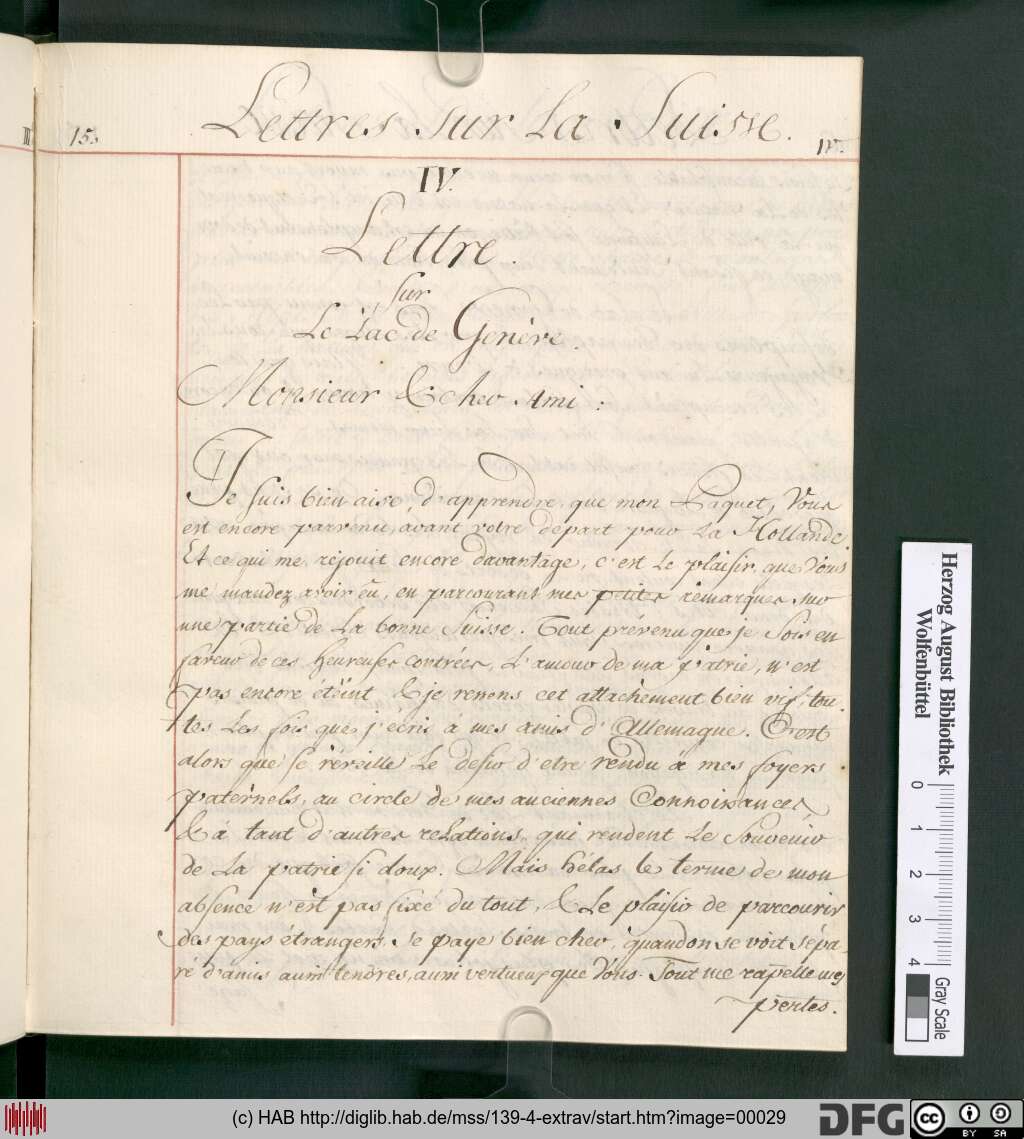 15.
Lettres sur La Suisse.
IV.
Lettre
sur
Le Lac de Genève.
Monsieur & cher Ami:
Je suis bien aise, d'apprendre, que mon Paquet, Vous
est encore parvenu, avant votre départ pour La Hollande.
Et ce qui me réjouit encore davantage, c'est Le plaisir, que Vous
me mandez avoir eû, en parcourant mes petites remarques sur
une partie de La bonne Suisse. Tout prévenu que je Sois en
faveur de ces heureuses contrées, L'amour de ma patrie, n'est
pas encore éteint, & je renens cet attachement bien vif, tou-
tes Les fois que j'écris à mes amis d'Allemagne. C'est
alors que se réveille Le desir d'etre rendu à mes foyers
paternels, au circle de mes anciennes Connoissances
& à tant d'autres reLations, qui rendent Le Souvenir
de La patrie si doux. Mais hélas le terme de mon
absence n'est pas fixé du tout, & Le plaisir de parcourir
des pays étrangers, se paye bien cher, quand on se voit sépa-
ré d'amis aussi tendres, aussi vertueux que Vous. Tout me rapelle mes
pertes.
Herzog August Bibliothek
Wolfenbüttel
0 1 2 3 4
Gray Scale
(c) HAB http://diglib.hab.de/mss/139-4-extrav/start.htm?image=00029
DFG
cc BY SA